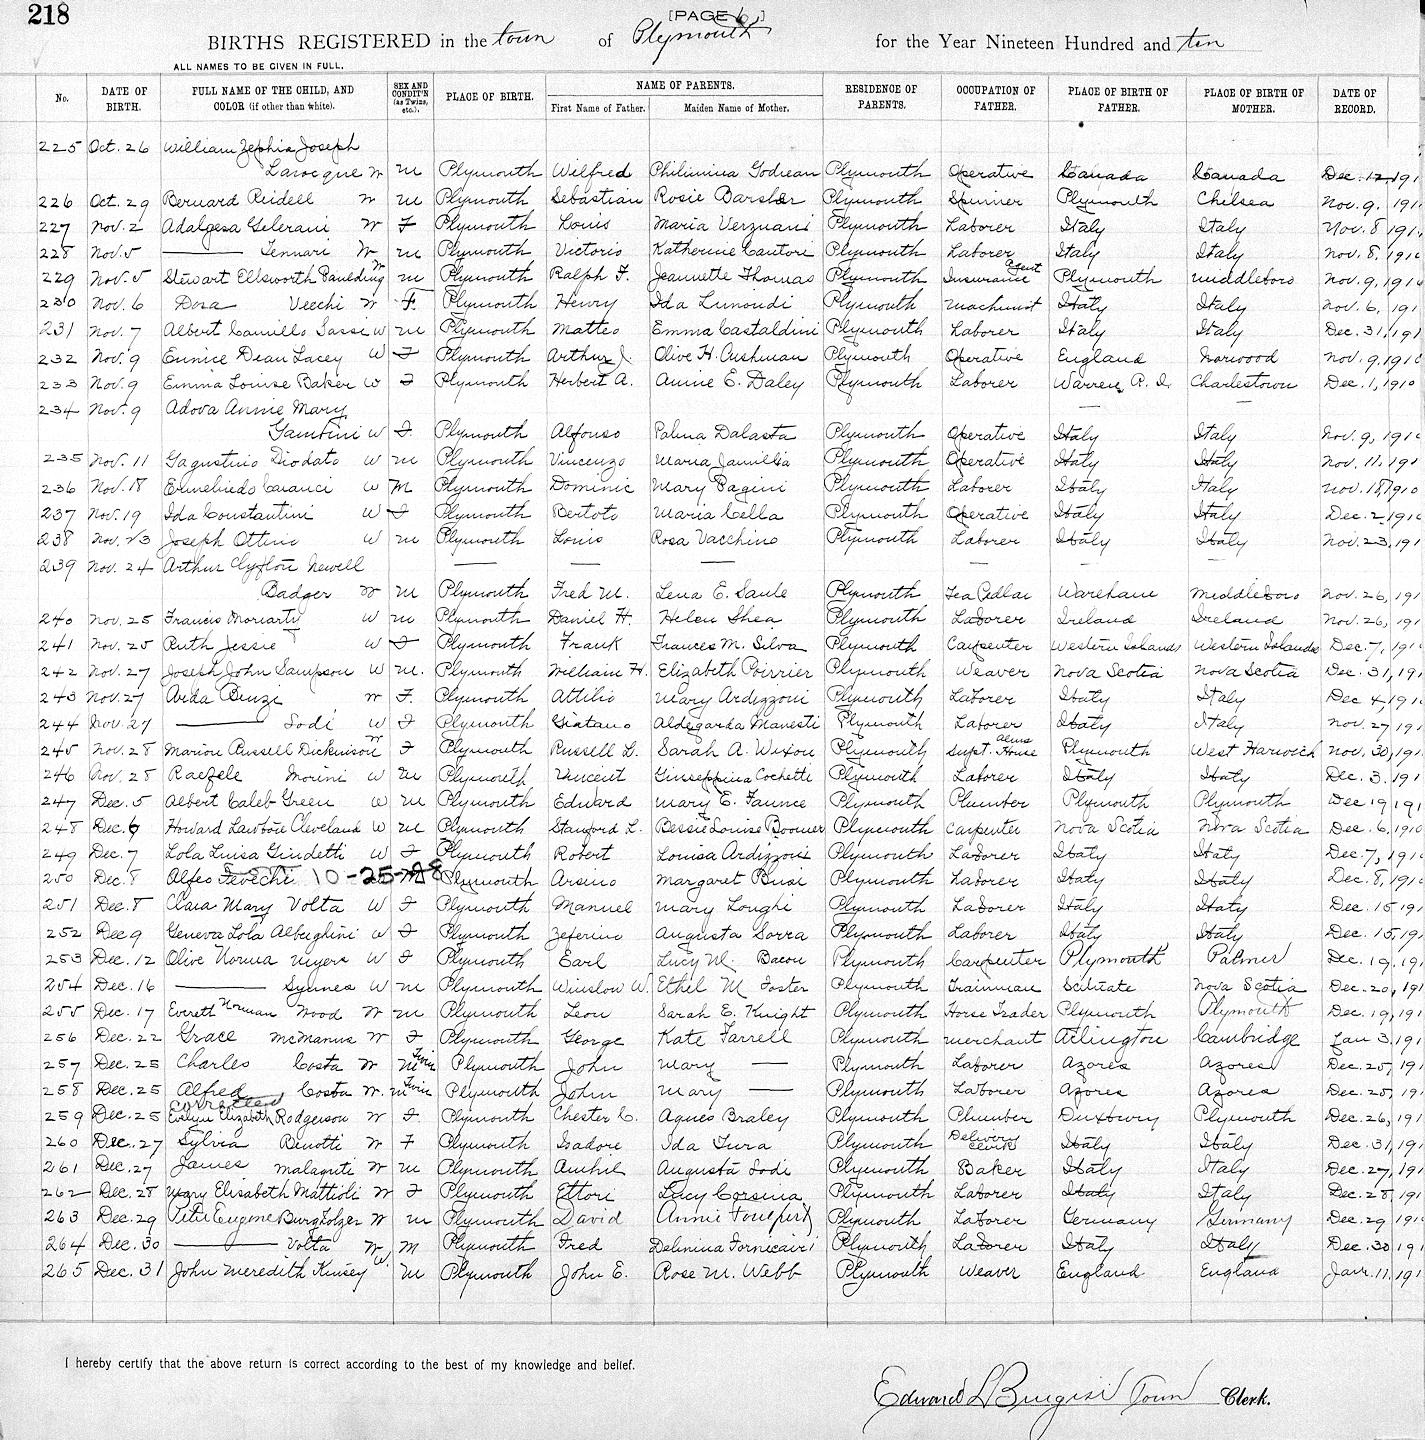 218
[PAGE 6]
BIRTHS REGISTERED in the town of Plymouth for the Year Nineteen Hundred and ten
ALL NAMES TO BE GIVEN IN FULL.
No. DATE OF BIRTH. FULL NAME OF THE CHILD, AND COLOR (if other than white). SEX AND CONDIT'N (as Twins, etc.). PLACE OF BIRTH. NAME OF PARENTS. First Name of Father. Maiden Name of Mother. RESIDENCE OF PARENTS. OCCUPATION OF FATHER. PLACE OF BIRTH OF FATHER. PLACE OF BIRTH OF MOTHER. DATE OF RECORD.
225 Oct. 26 William Zephia Joseph
Larocque W M Plymouth Wilfred Philimina Godreau Plymouth Operative Canada Canada Dec. 12, 191
226 Oct. 29 Bernard Riedell W M Plymouth Sebastian Rosie Plymouth Spinner Plymouth Chelsea Nov. 9, 191
227 Nov. 2 Adalgesa W F Plymouth Louis Maria Plymouth Laborer Italy Italy Nov. 8 191
228 Nov. 5 —— W M Plymouth Victorio Katherine Plymouth Laborer Italy Italy Nov. 8, 191
229 Nov. 5 Stewart Ellsworth Paulding W M Plymouth Ralph F. Jeannette Thomas Plymouth Insurance Agent Plymouth Middleboro Nov. 9, 191
230 Nov. 6 Dora Vecchi W F. Plymouth Henry Ida Plymouth Machinist Italy Italy Nov. 6, 191
231 Nov. 7 Albert Camillo Sassi W M Plymouth Matteo Emma Castaldini Plymouth Laborer Italy Italy Dec. 31, 191
232 Nov. 9 Eunice Dean Lacey W F Plymouth Arthur J. Olive H. Cushman Plymouth Operative England Norwood Nov. 9, 1910
233 Nov. 9 Emma Louise Baker W F Plymouth Herbert A. Annie E. Daley Plymouth Laborer Warren, R. I. Charlestown Dec. 1, 1910
234 Nov. 9 Adova Annie Mary — —
Gambini W F. Plymouth Alfonso Palma Dalasta Plymouth Operative Italy Italy Nov. 9, 191
235 Nov. 11 Diodato W M Plymouth Vincenzo Maria Plymouth Operative Italy Italy Nov. 11, 191
236 Nov. 18 W M Plymouth Dominic Mary Pagini Plymouth Laborer Italy Italy Nov. 18, 1910
237 Nov. 19 Ida Constantini W F Plymouth Bertoto Maria Cella Plymouth Operative Italy Italy Dec. 2, 191
238 Nov. 23 Joseph Ottino W M Plymouth Louis Rosa Vacchino Plymouth Laborer Italy Italy Nov. 23, 191
239 Nov. 24 Arthur Clyfton Newell — — — — — —
Badger W M Plymouth Fred M. Lena E. Saule Plymouth Tea Pedlar Wareham Middleboro Nov. 26, 191
240 Nov. 25 Francis Moriarty W M Plymouth Daniel H. Helen Shea Plymouth Laborer Ireland Ireland Nov. 26, 191
241 Nov. 25 Ruth Jessie W F Plymouth Frank Frances M. Silva Plymouth Carpenter Western Islands Western Islands Dec. 7, 191
242 Nov. 27 Joseph John Sampson W M. Plymouth William H. Elizabeth Poirrier Plymouth Weaver Nova Scotia Nova Scotia Dec. 31, 191
243 Nov. 27 Aida Binzi W F. Plymouth Attilio Mary Ardizzoni Plymouth Laborer Italy Italy Dec 4, 191
244 Nov. 27 —— Lodi W F Plymouth Giatano Aldegarda Manesti Plymouth Laborer Italy Italy Nov. 27 191
245 Nov. 28 Marion Russell Dickinson W F Plymouth Russell L. Sarah A. Wixon Plymouth Supt. Alms House Plymouth West Harwich Nov. 30, 191
246 Nov. 28 Raefele Morini W M Plymouth Vincent Giuseppina Cochette Plymouth Laborer Italy Italy Dec. 3. 191
247 Dec. 5 Albert Caleb Green W M Plymouth Edward Mary E. Faunce Plymouth Plumber Plymouth Plymouth Dec 19 191
248 Dec. 6 Howard Lawton Cleveland W M Plymouth Stanford L. Bessie Louise Boomer Plymouth Carpenter Nova Scotia Nova Scotia Dec. 6, 1910
249 Dec. 7 Lola Luisa Giudetti W F Plymouth Robert Louisa Ardizzoni Plymouth Laborer Italy Italy Dec. 7, 191
250 Dec. 8 Alfeo Fevechi 10-25-48 Plymouth Arsino Margaret Busi Plymouth Laborer Italy Italy Dec. 8, 191
251 Dec. 8 Clara Mary Volta W F Plymouth Manuel Mary Longhi Plymouth Laborer Italy Italy Dec. 15 191
252 Dec 9 Geneva Lola Alberghini W F Plymouth Zeferino Augusta Sorra Plymouth Laborer Italy Italy Dec. 15, 191
253 Dec. 12 Olive Norma Myers W F Plymouth Earl Lucy M. Bacon Plymouth Carpenter Plymouth Palmer Dec. 19, 191
254 Dec. 16 —— Symes W M Plymouth Winslow W. Ethel M Foster Plymouth Trainman Scituate Nova Scotia Dec. 20, 191
255 Dec. 17 Everett Norman Wood W M Plymouth Leon Sarah E. Knight Plymouth Horse Trader Plymouth Plymouth Dec. 19, 191
256 Dec. 22 Grace McManus W F Plymouth George Kate Farrell Plymouth Merchant Arlington Cambridge Jan 3, 191
257 Dec. 25 Charles Costa W M Twin Plymouth John Mary — Plymouth Laborer Azores Azores Dec. 25, 191
258 Dec. 25 Alfred Costa W. M Twin Plymouth John Mary — Plymouth Laborer Azores Azores Dec. 25, 191
corrected
259 Dec. 25 Evelyn Elizabeth Rodgerson W F. Plymouth Chester C. Agnes Braley Plymouth Plumber Duxbury Plymouth Dec. 26, 191
260 Dec. 27 Sylvia Binotti W F Plymouth Isadore Ida Tura Plymouth Delivery Clerk Italy Italy Dec. 31, 191
261 Dec. 27 James Malaguti W M Plymouth Augusta Lodi Plymouth Baker Italy Italy Dec. 27, 191
262 Dec. 28 Mary Elisabeth Mattioli W F Plymouth Ettori Lucy Corsina Plymouth Laborer Italy Italy Dec. 28, 191
263 Dec. 29 Peter Eugene Burgholzer W M Plymouth David Annie Plymouth Laborer Germany Germany Dec. 29 191
264 Dec. 30 —— Volta W, M Plymouth Fred Delmina Plymouth Laborer Italy Italy Dec. 30 191
265 Dec. 31 John Meredith Kinsey W. M Plymouth John E. Rose M. Webb Plymouth Weaver England England Jan. 11, 191
I hereby certify that the above return is correct according to the best of my knowledge and belief.
Edward L Burgess Town Clerk.